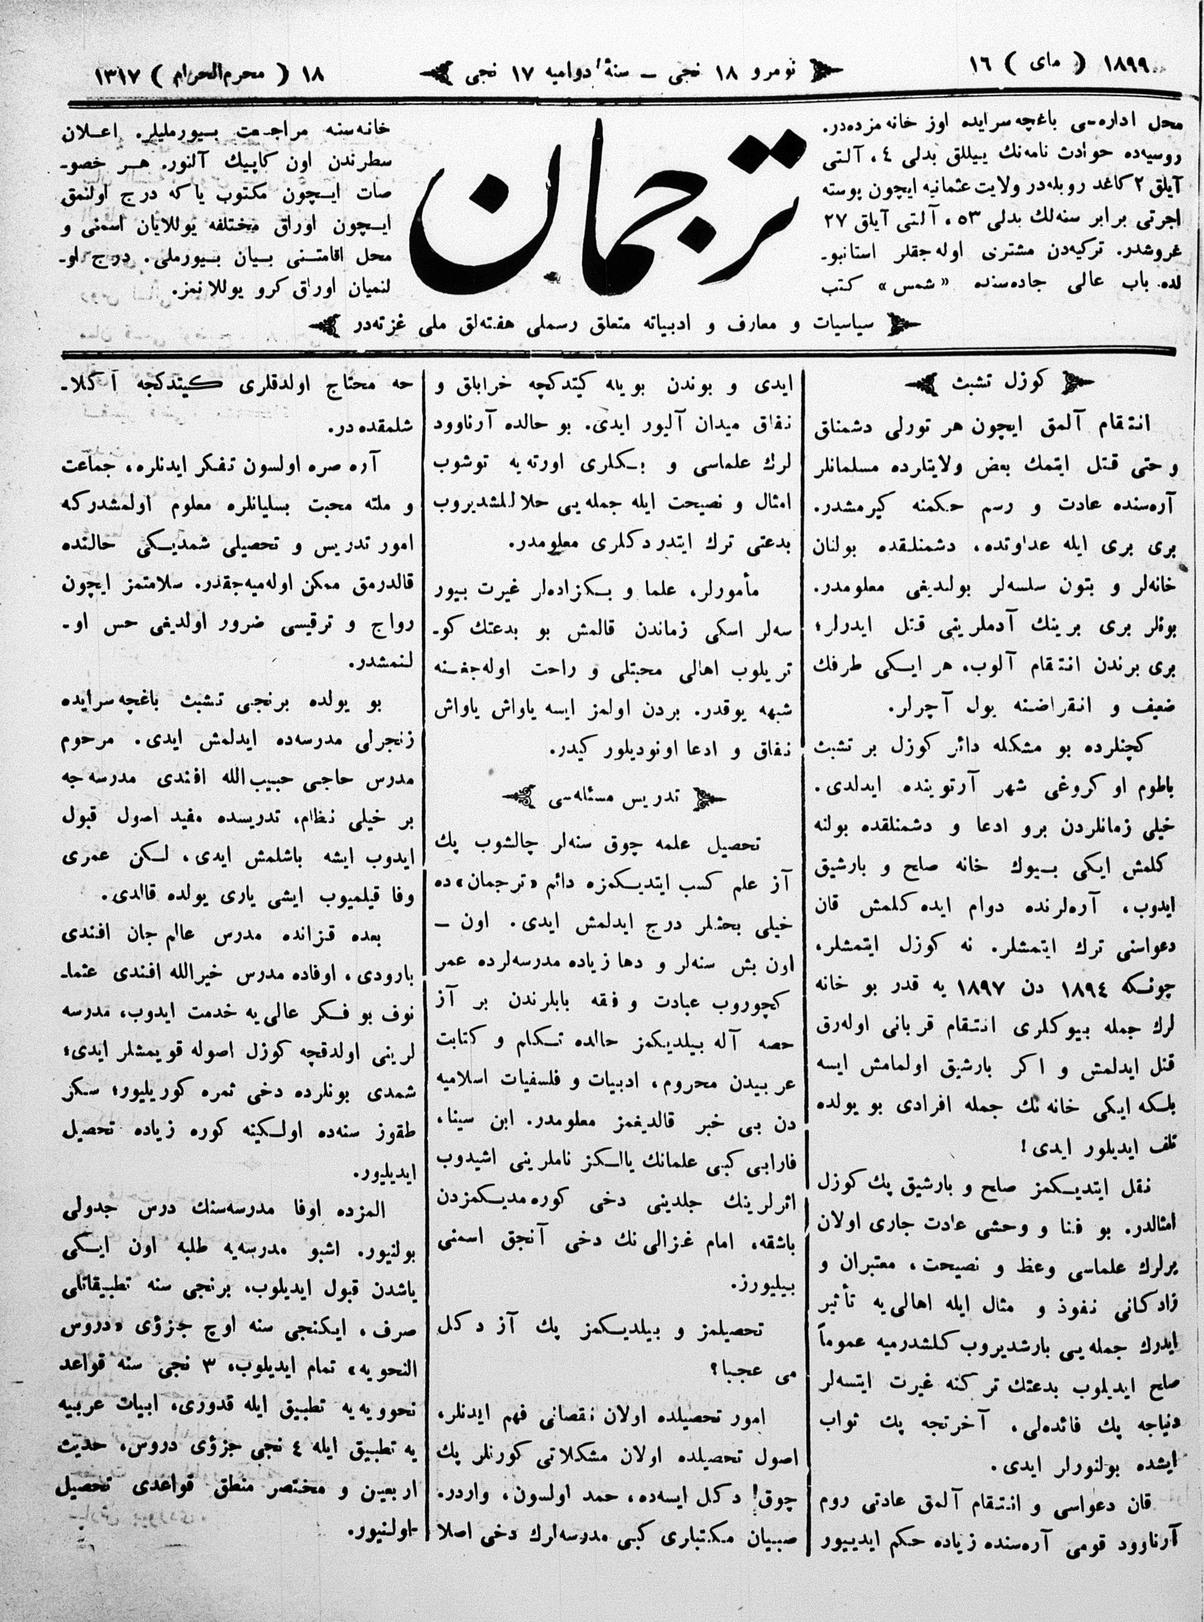 ١٨٩٩ ( مای ) ١٦
نومرو ١٨ نجی ــ سنهٔ دوامیه ١٧ نجی
١٨ ( محرم الحرام ) ١٣١٧
محل اداره‌سی باغچه‌سرایده اوز خانه مزده‌در.
روسیه‌ده حوادث نامه‌نك ییللق بدلی ٤، آلتی
آیلق ٢ کاغد روبله‌در ولایت عثمانیه ایچون پوسته
اجرتی برابر سنه‌لك بدلی ٥٣، آلتی آیلق ٢٧
غروشدر. ترکیه‌دن مشتری اوله‌جقلر استانبو‍ـ
لده باب عالی جاده‌سنده «شمس» کتب
ترجمان
خانه‌سنه مراجعت بیورملیلر. اعلان
سطرندن اون کاپیك آلنور. هر خصو‍ـ
صات ایچون مکتوب یاکه درج اولنمق
ایچون اوراق مختلفه یوللایان اسمنی و
محل اقامتنی بیان بیورملی. درج او‍ـ
لنمیان اوراق کرو یوللانمز.
سیاسیات و معارف و ادبیاته متعلق رسملی هفته‌لق ملی غزته‌در
کوزل تشبث
انتقام آلمق ایچون هر تورلی دشمنلق
و حتی قتل ایتمك بعض ولایتلرده مسلمانلر
آره‌سنده عادت و رسم حکمنه کیرمشدر.
بری بری ایله عداوتده، دشمنلقده بولنان
خانه‌لر و بتون سلسه‌لر بولندیغی معلومدر.
بونلر بری برینك آدملرینی قتل ایدرلر؛
بری برندن انتقام آلوب، هر ایکی طرفك
ضعیف و انقراضنه یول آچرلر.
کچنلرده بو مشکله دائر کوزل بر تشبث
باطوم اوکروغی شهر آرتوینده ایدلدی.
خیلی زمانلردن برو ادعا و دشمنلقده بولنه
کلمش ایکی بیوك خانه صلح و بارشیق
ایدوب، آره‌لرنده دوام ایده کلمش قان
دعواسنی ترك ایتمشلر. نه کوزل ایتمشلر،
چونکه ١٨٩٤ دن ١٨٩٧ یه قدر بو خانه
لرك جمله بیوکلری انتقام قربانی اوله‌رق
قتل ایدلمش و اکر بارشیق اولمامش ایسه
بلکه ایکی خانه‌نك جمله افرادی بو یولده
تلف ایدیلور ایدی!
نقل ایتدیکمز صلح و بارشیق پك کوزل
امثالدر. بو فنا و وحشی عادت جاری اولان
یرلرك علماسی وعظ و نصیحت، معتبران و
زادکانی نفوذ و مثال ایله اهالی‌یه تأثیر
ایدرك جمله‌یی بارشدیروب کلشدرمیه عموماً
صلح ایدیلوب بدعتك ترکنه غیرت ایتسه‌لر
دنیاجه پك فائده‌لی، آخرتجه پك ثواب
ایشده بولنورلر ایدی.
قان دعواسی و انتقام آلمق عادتی روم
آرناوود قومی آره‌سنده زیاده حکم ایدییور
ایدی و بوندن بویله کیتدکچه خرابلق و
نفاق میدان آلیور ایدی. بو حالده آرناوود
لرك علماسی و بکلری اورته‌یه توشوب
امثال و نصیحت ایله جمله‌یی حلاللشدیروب
بدعتی ترك ایتدردکلری معلومدر.
مأمورلر، علما و بکزاده‌لر غیرت بیور
سه‌لر اسکی زماندن قالمش بو بدعتك کو‍ـ
تریلوب اهالی محبتلی و راحت اوله‌جغنه
شبهه یوقدر. بردن اولمز ایسه یاواش یاواش
نفاق و ادعا اونودیلور کیدر.
تدریس مسئله‌سی
تحصیل علمه چوق سنه‌لر چالشوب پك
آز علم کسب ایتدیکمزه دائم «ترجمان»ده
خیلی بحثلر درج ایدلمش ایدی. اون ــ
اون بش سنه‌لر و دها زیاده مدرسه‌لرده عمر
کچوروب عبادت و فقه بابلرندن بر آز
حصه آله بیلدیکمز حالده تکلم و کتابت
عربیدن محروم، ادبیات و فلسفیات اسلامیه
دن بی خبر قالدیغمز معلومدر. ابن سینا،
فارابی کبی علمانك یالکز ناملرینی اشیدوب
اثرلرینك جلدینی دخی کوره‌مدیکمزدن
باشقه، امام غزالی‌نك دخی آنجق اسمنی
بیلیورز.
تحصیلمز و بیلدیکمز پك آز دکل
می عجبا؟
امور تحصیلده اولان نقصانی فهم ایدنلر،
اصول تحصیلده اولان مشکلاتی کورنلر پك
چوق! دکل ایسه‌ده، حمد اولسون، واردر.
صبیان مکتبلری کبی مدرسه‌لرك دخی اصلا
حه محتاج اولدقلری کیتدکجه آکلا‍ـ
شلمقده در.
آره صره اولسون تفکر ایدنلره، جماعت
و ملته محبت بسلیانلره معلوم اولمشدرکه
امور تدریس و تحصیلی شمدیکی حالنده
قالدرمق ممکن اوله‌میه‌جقدر. سلامتمز ایچون
رواج و ترقیسی ضرور اولدیغی حس او‍ـ
لنمشدر.
بو یولده برنجی تشبث باغچه‌سرایده
زنجرلی مدرسه‌ده ایدلمش ایدی. مرحوم
مدرس حاجی حبیب‌الله افندی مدرسه‌جه
بر خیلی نظام، تدریسده مفید اصول قبول
ایدوب ایشه باشلمش ایدی، لکن عمری
وفا قیلمیوب ایشی یاری یولده قالدی.
بعده قزانده مدرس عالم جان افندی
بارودی، اوفاده مدرس خیرالله افندی عثما‍ـ
نوف بو فکر عالی‌یه خدمت ایدوب، مدرسه
لرینی اولدقچه کوزل اصوله قویمشلر ایدی؛
شمدی بونلرده دخی ثمره کوریلیور؛ سکز
طقوز سنه‌ده اولکینه کوره زیاده تحصیل
ایدیلیور.
المزده اوفا مدرسه‌سنك درس جدولی
بولنیور. اشبو مدرسه‌یه طلبه اون ایکی
یاشدن قبول ایدیلوب، برنجی سنه تطبیقاتلی
صرف، ایکنجی سنه اوچ جزؤی «دروس
النحویه» تمام ایدیلوب، ٣ نجی سنه قواعد
نحوویه‌یه تطبیق ایله قدوری، ابیات عربیه
یه تطبیق ایله ٤ نجی جزؤی دروس، حدیث
اربعین و مختصر منطق قواعدی تحصیل
اولنیور.